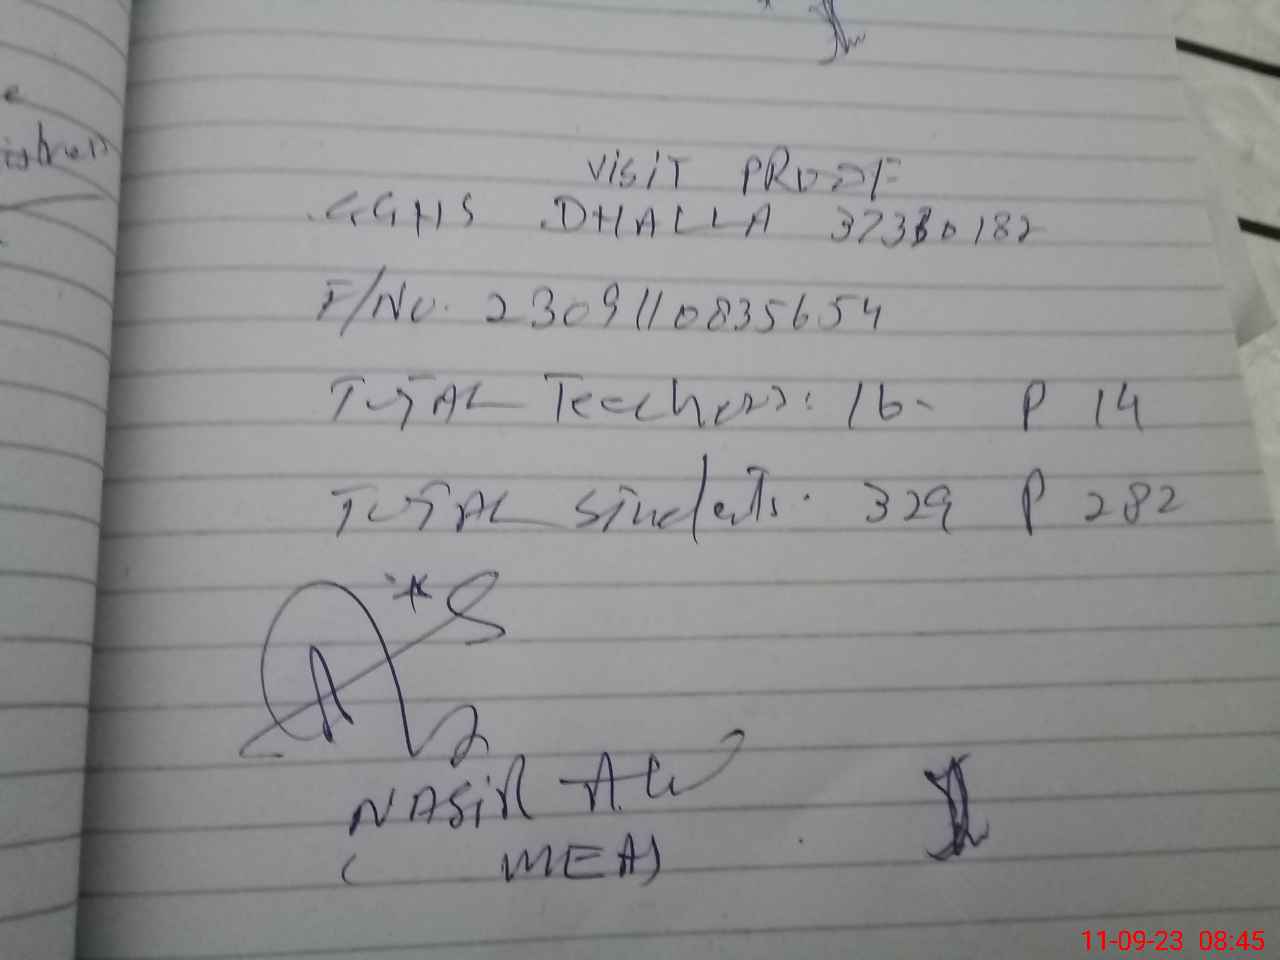 VISIT PROOF
GGHS DHALLA 37330182
F/No. 2309110835654
TOTAL Teachers: 16- P 14
TOTAL Students. 329 P 282
NASIR
( MEA)
11-09-23 08:45